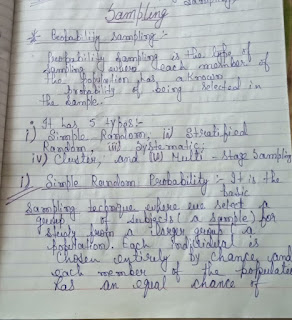 Sampling
* Probability sampling :-
Probability sampling is the type of
sampling where each member of
the population has a known
probability of being selected in
the sample.
• It has 5 types :-
i) Simple Random, ii) Stratified
Random, iii) Systematic,
iv) Cluster, and (v) Multi-stage Sampling
i) Simple Random Probability :- It is the
basic
sampling technique where we select a
group of subjects (a sample) for
study from a larger group (a
population. Each individual is
chosen entirely by chance and
each member of the population
has an equal chance of